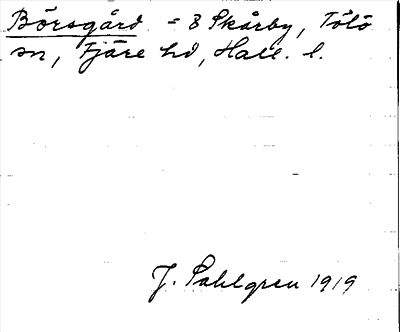 Börsgård = 8 Skårby, Tölö
sn, Fjäre hd, Hall. l.
J. Sahlgren 1919